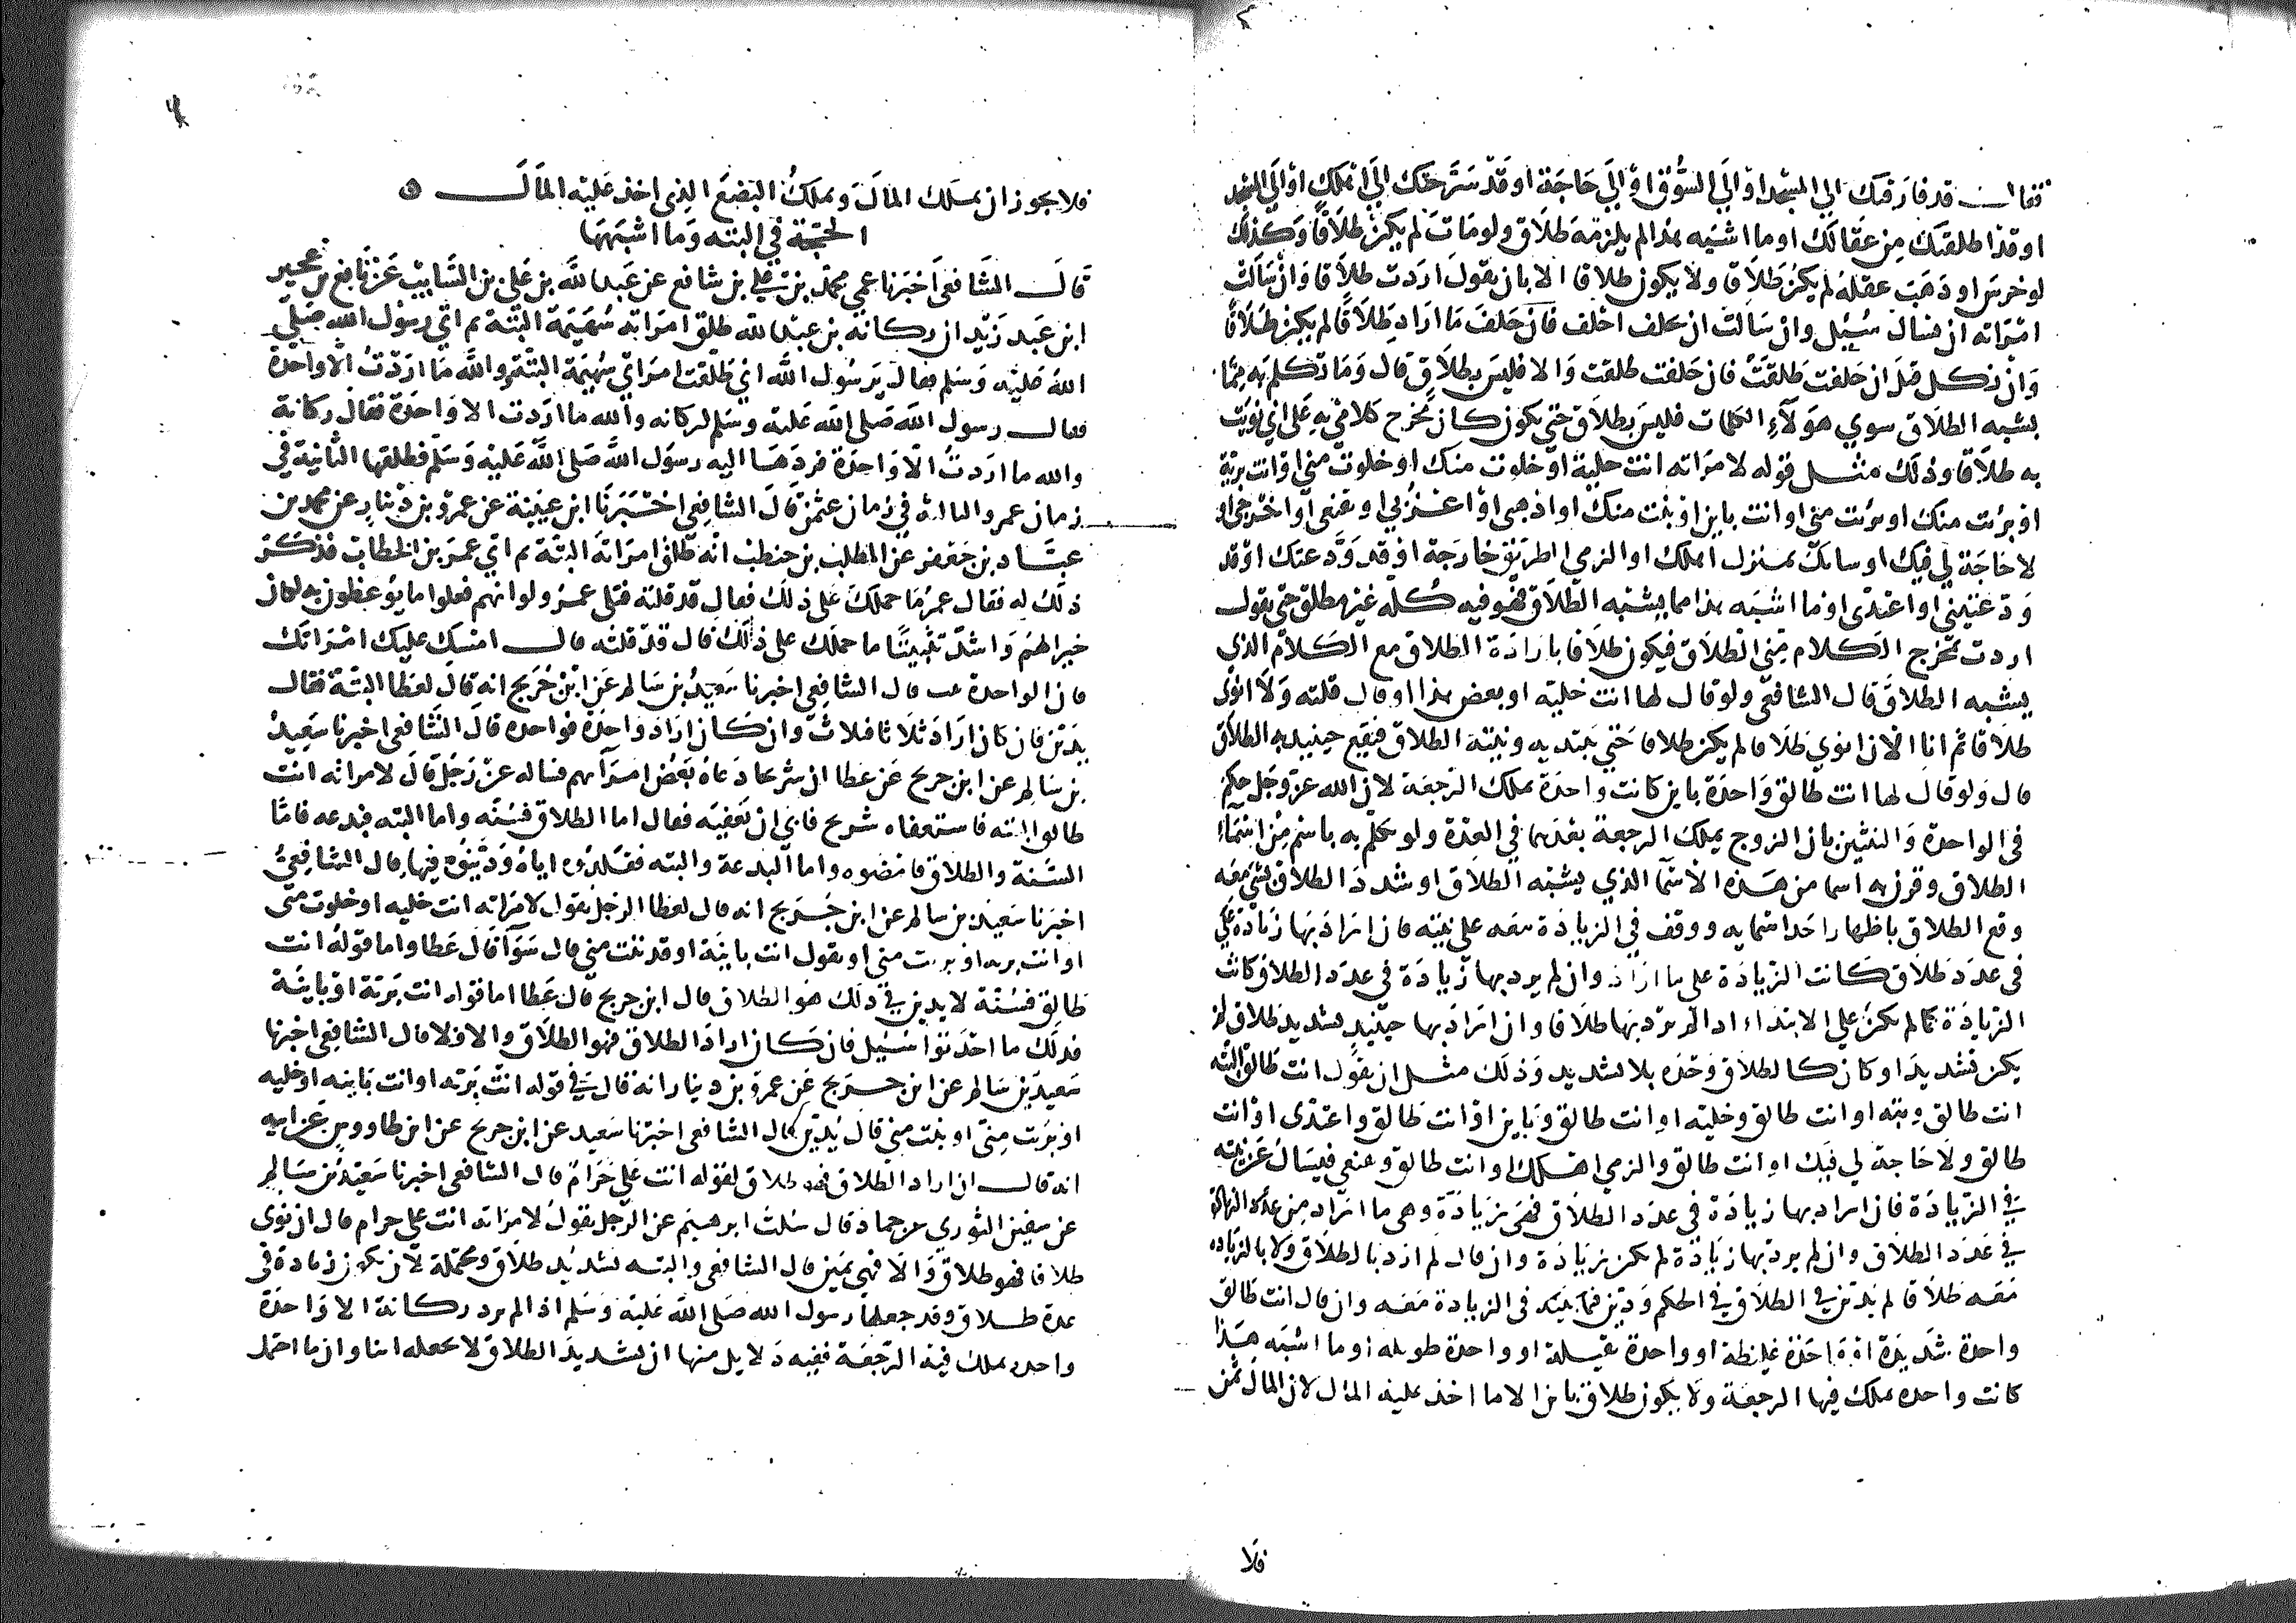 فقال قد فارقتك الى المسجد او الى السوق او الى حاجة او قد سرحتك الى اهلك او الى المسجد
او قد اطلقتك من عقالك او ما اشبه هذا لم يلزمه طلاق ولو مات لم يكن طلاقا وكذلك
لو خرس او ذهب عقله لم يكن طلاقا ولا يكون طلاقا الا بان يقول اردت طلاقا وان سالت
امراته ان يسال سئل وان سالت ان يحلف احلف فان حلف ما اراد طلاقا لم يكن طلاقا
وان نكل قيل ان حلفت طلقت فان حلفت طلقت والا فليس بطلاق قال وما تكلم به مما
يشبه الطلاق سوى هولاء الكلمات فليس بطلاق حتى يكون كان مخرج كلامى به على انى نويت
به طلاقا وذلك مثل قوله لامراته انت خلية او خلوت منك او خلوت منى او انت برية
او برئت منك او برئت منى او انت باين او بنت منك او اذهبى او اعزبى او تقنعى او اخرجى او
لا حاجة لى فيك او شانك بمنزل اهلك او الزمى الطريق خارجة او قد ودعتك او قد
ودعتينى او اعتدى او ما اشبه هذا مما يشبه الطلاق فهو فيه كله غير مطلق حتى يقول
اردت بمخرج الكلام منى الطلاق فيكون طلاقا بارادة الطلاق مع الكلام الذى
يشبه الطلاق قال الشافعى ولو قال لها انت خلية او بعض هذا او قال قلته ولا انوى
طلاقا ثم انا الان انوى طلاقا لم يكن طلاقا حتى يبتديه ونيته الطلاق فيقع حينيذ به الطلاق
قال ولو قال لها انت طالق واحدة باين كانت واحدة يملك الرجعة لان الله عز وجل حكم
فى الواحدة والثنتين بان الزوج يملك الرجعة بعدهما فى العدة ولو تكلم به باسم من اسماء
الطلاق وقرن به اسما من هذه الاسما الذى يشبه الطلاق او شدد الطلاق بشى معه
وقع الطلاق باظهار احد اسمايه ووقف فى الزيادة معه على نيته فان اراد بها زيادة على
فى عدد طلاق كانت الزيادة على ما اراد وان لم يرد بها زيادة فى عدد الطلاق كانت
الزيادة كما لم يكن على الابتداء اذا لم يرد بها طلاقا وان اراد بها حينيذ تشديد طلاق لم
يكن تشديدا وكان كالطلاق وحده بلا تشديد وذلك مثل ان يقول انت طالق البته
انت طالق وبته او انت طالق وخليه او انت طالق وباين او انت طالق واعتدى او انت
طالق ولا حاجة لى فيك او انت طالق والزمى اهلك او انت طالق وتقنعى فيسال عن نيته
فى الزيادة فان اراد بها زيادة فى عدد الطلاق فهى زيادة وهى ما اراد من عدد الزيادة
فى عدد الطلاق وان لم يرد بها زيادة لم تكن زيادة وان قال لم ارد بالطلاق ولا بالزياده
معه طلاقا لم يدين فى الطلاق فى الحكم ودين فى الزيادة معه وان قال انت طالق
واحدة شديدة او واحدة غليظة او واحدة ثقيلة او واحدة طويله او ما اشبه هذا
كانت واحده يملك فيها الرجعة ولا يكون طلاق باين الا ما اخذ عليه المال لان المال ثمن
فلا
فلا يجوز ان يملك المال ويملك البضع الذى اخذ عليه المال
الحجة فى البته وما اشبهها
قال الشافعى اخبرنا عمى محمد بن على بن شافع عن عبد الله بن على بن السايب عن نافع بن عجير
ابن عبد زيد ان ركانه بن عبد الله طلق امراته سهيمة البتة ثم اتى رسول الله صلى
الله عليه وسلم فقال يرسول الله انى طلقت امراتى سهيمة البتة والله ما اردت الا واحدة
فقال رسول الله صلى الله عليه وسلم لركانه والله ما اردت الا واحدة فقال ركانة
والله ما اردت الا واحدة فردها اليه رسول الله صلى الله عليه وسلم فطلقها الثانية فى
زمان عمر والثالثة فى زمان عثمن قال الشافعى اخبرنا ابن عيينة عن عمرو بن دينار عن محمد بن
عباد بن جعفر عن المطلب بن حنطب انه طلق امراته البتة ثم اتى عمر بن الخطاب فذكر
ذلك له فقال عمر ما حملك على ذلك فقال قد قلته فتلى عمر ولو انهم فعلوا ما يوعظون به لكان
خيرا لهم واشد تثبيتا ما حملك على ذلك قال قد قلته قال امسك عليك امراتك
فان الواحدة تبت قال الشافعى اخبرنا سعيد بن سالم عن ابن جريج انه قال لعطا البتة فقال
يدين فان كان اراد ثلاثا فثلاث وان كان اراد واحدة فواحده قال الشافعى اخبرنا سعيد
بن سالم عن ابن جريج عن عطا ان شريحا دعاه بعض امرآيهم فساله عن رجل قال لامراته انت
طالق البته فاستعفاه شريح فابى ان يعفيه فقال اما الطلاق فسنه واما البته فبدعه فاما
السنة والطلاق فامضوه واما البدعة والبته فقلدوه اياه ودينوه فيها قال الشافعى
اخبرنا سعيد بن سالم عن ابن جريج انه قال لعطا الرجل يقول لامراته انت خليه او خلوت منى
او انت بريه او بريت منى او يقول انت باينة او قد بنت منى قال سوآ قال عطا واما قوله انت
طالق فسنة لا يدين فى ذلك هو الطلاق قال ابن جريج قال عطا اما قوله انت برية او باينة
فذلك ما احدثوا سئيل فان كان اراد الطلاق فهو الطلاق والا فلا قال الشافعى اخبرنا
سعيد بن سالم عن ابن جريج عن عمرو بن دينار انه قال فى قوله انت بريه او انت باينه او خليه
او بريت منى او بنت منى قال يدين قال الشافعى اخبرنا سعيد عن ابن جريج عن ابن طاووس عن ابيه
انه قال ان اراد الطلاق فهو طلاق لقوله انت على حرام قال الشافعى اخبرنا سعيد بن سالم
عن سفين الثورى عن حماد قال سئلت ابرهيم عن الرجل يقول لامراته انت على حرام قال ان نوى
طلاقا فهو طلاق والا فهى يمين قال الشافعى والبته تشديد طلاق ومحتملة لان تكون زيادة فى
عدة طلاق وقد جعلها رسول الله صلى الله عليه وسلم اذا لم يرد ركانة الا واحدة
واحده يملك فيه الرجعة ففيه دلايل منها ان تشديد الطلاق لا يجعله باينا وان ما احتمل